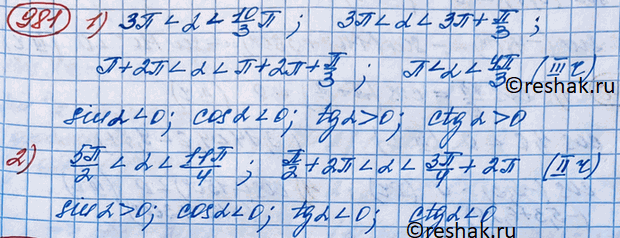 981 1) 3π < α < 10/3 π ; 3π < α < 3π + π/3 ;
π + 2π < α < π + 2π + π/3 ; π < α < 4π/3 (III ч)
sin α < 0; cos α < 0; tg α > 0; ctg α > 0
2) 5π/2 < α < 11π/4 ; π/2 + 2π < α < 3π/4 + 2π (II ч)
sin α > 0; cos α < 0; tg α < 0; ctg α < 0
©reshak.ru
©reshak.ru